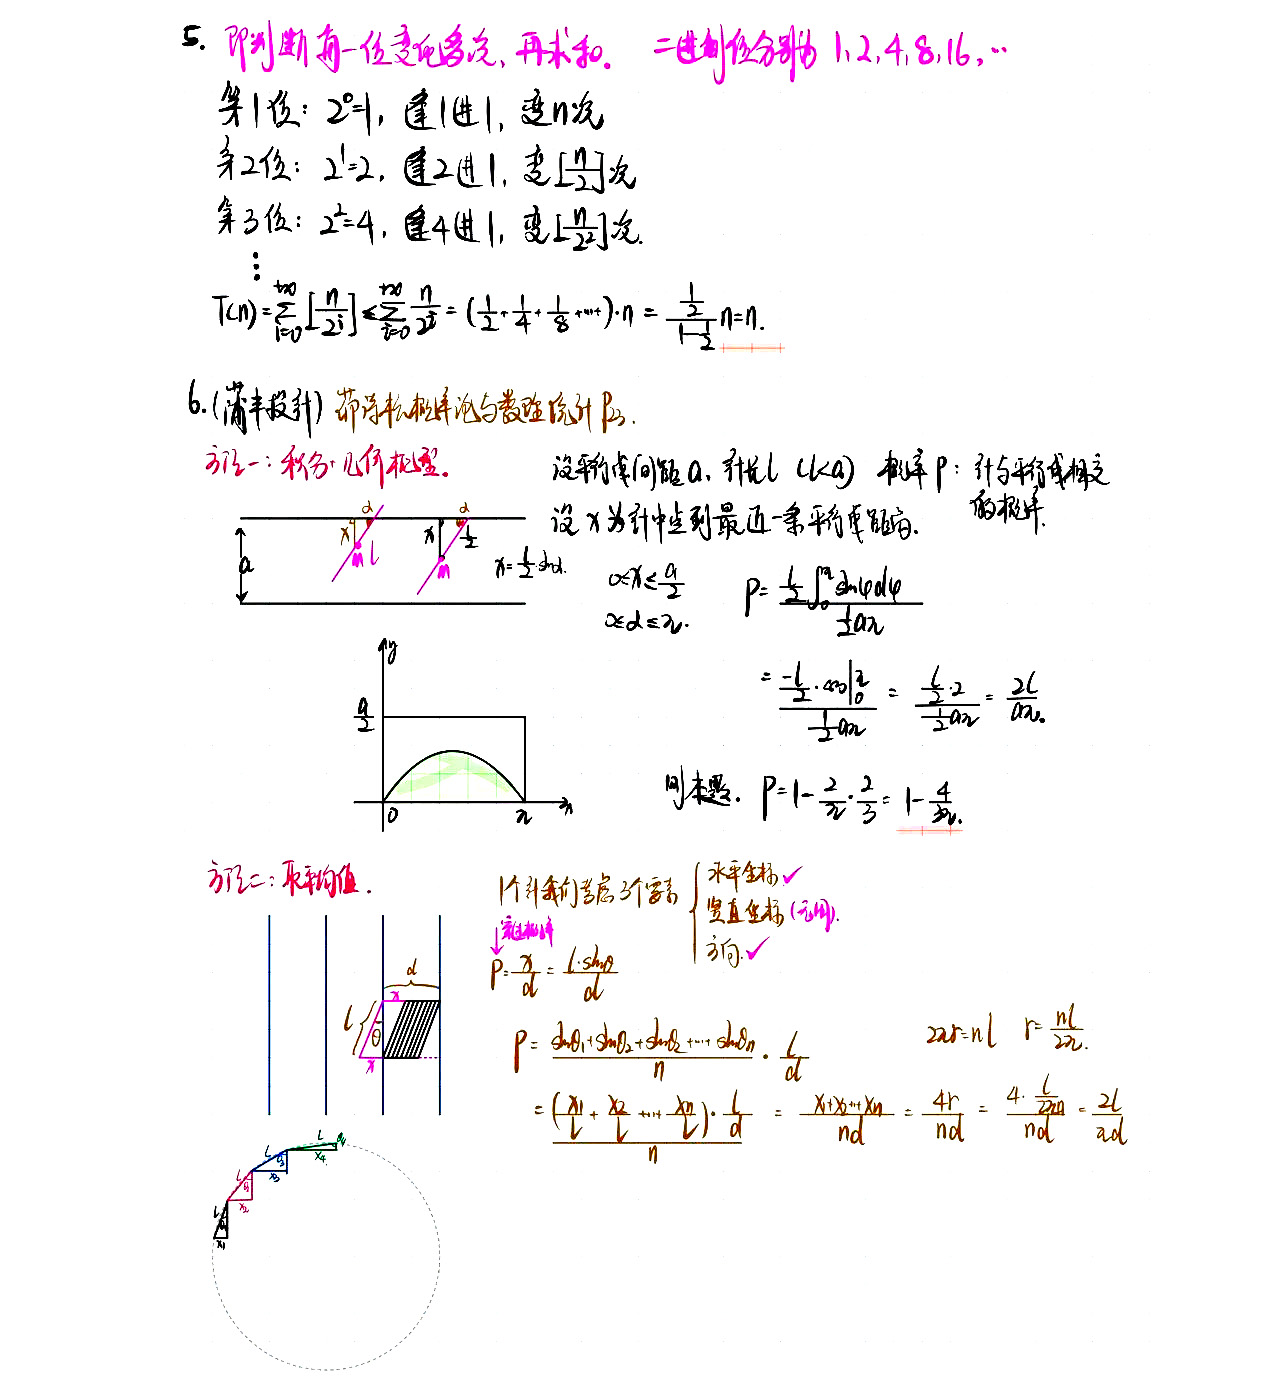 5. 即判断每一位变化多少次，再求和。 二进制位分别为 1,2,4,8,16,…
第1位：2⁰=1，逢1进1，变n次
第2位：2¹=2，逢2进1，变⌊n/2⌋次
第3位：2²=4，逢4进1，变⌊n/2²⌋次.
⋮
T(n)=∑_{i=0}^{+∞}⌊n/2^i⌋≤∑_{i=0}^{+∞} n/2^i=(1/2+1/4+1/8+…+)·n=(1/2)/(1-1/2) n=n.
6.(蒲丰投针) 茆诗松概率论与数理统计 P23.
方法一：积分+几何概型。
设平行线间距a，针长l (l<a) 概率P：针与平行线相交的概率.
设x为针中点到最近一条平行线距离.
α α
x x l/2
M l M
a
x=l/2·sinα
0≤x≤a/2
0≤α≤π.
P=(l/2∫₀^π sinφdφ)/(1/2 aπ)
=(-l/2·cos|₀^π)/(1/2 aπ)=(l/2·2)/(1/2 aπ)=2l/aπ。
y
a/2
0 π x
则本题. P=1-2/π·2/3=1-4/3π.
方法二：取平均值.
1个针我们考虑3个要素
水平坐标✓
竖直坐标(无用).
方向.✓
P=x/d=l·sinθ/d
d
x
l θ
x
P=(sinθ₁+sinθ₂+sinθ₂+…+sinθn)/n·l/d
2πr=nl r=nl/2π.
=(x₁/L+x₂/L+…+xn/L)·l/d/n=(x₁+x₂+…+xn)/nd=4r/nd=(4·l/2πn)/nd=2l/πd
L L L L
x₁ x₂ x₃ x₄